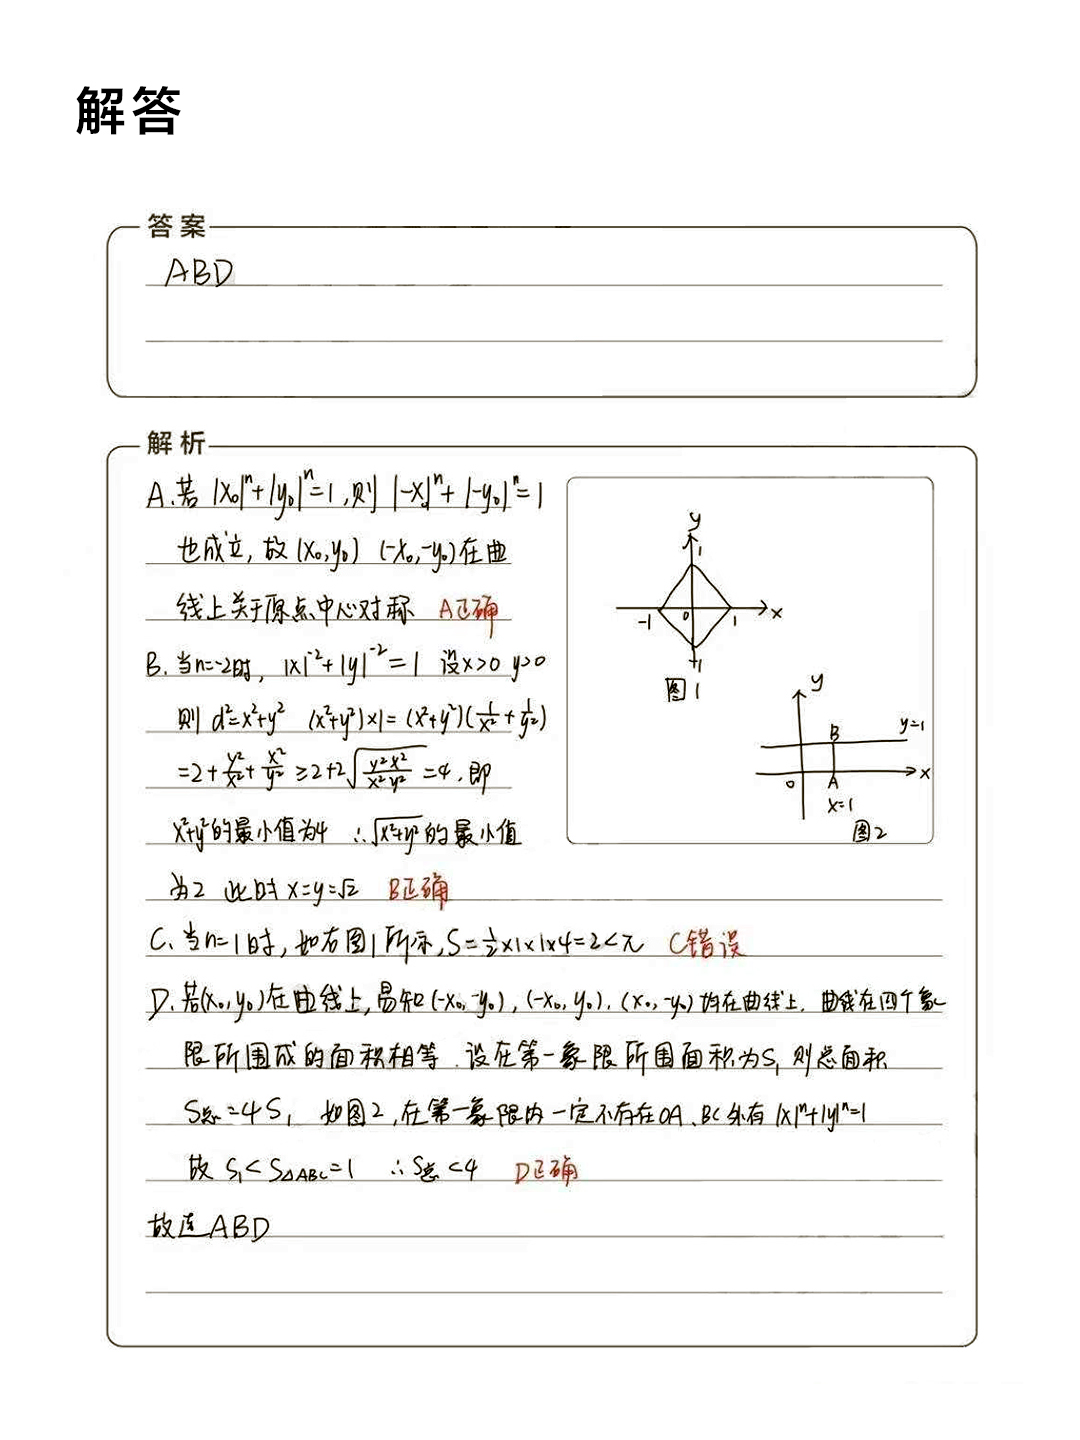 解答
答案
ABD
解析
A.若|x₀|ⁿ+|y₀|ⁿ=1,则|-x₀|ⁿ+|-y₀|ⁿ=1
也成立,故(x₀,y₀) (-x₀,-y₀)在曲
线上关于原点中心对称 A正确
B.当n=-2时,|x|⁻²+|y|⁻²=1 设x>0 y>0
则 d²=x²+y² (x²+y²)×1=(x²+y²)(1/x²+1/y²)
=2+y²/x²+x²/y²≥2+2√(y²x²/x²y²)=4.即
x²+y²的最小值为4 ∴√(x²+y²)的最小值
为2 此时x=y=√2 B正确
C.当n=1时,如右图1所示,S=1/2×1×1×4=2<π C错误
D.若(x₀,y₀)在曲线上,易知(-x₀,-y₀),(-x₀,y₀).(x₀,-y₀)均在曲线上.曲线在四个象
限所围成的面积相等.设在第一象限所围面积为S₁则总面积
S总=4S₁ 如图2,在第一象限内一定不存在OA、BC外有|x|ⁿ+|y|ⁿ=1
故S₁<S△ABC=1 ∴S总<4 D正确
故选ABD
y
1
-1
0
1
x
-1
图1
y
B
y=1
0
A
x
x=1
图2